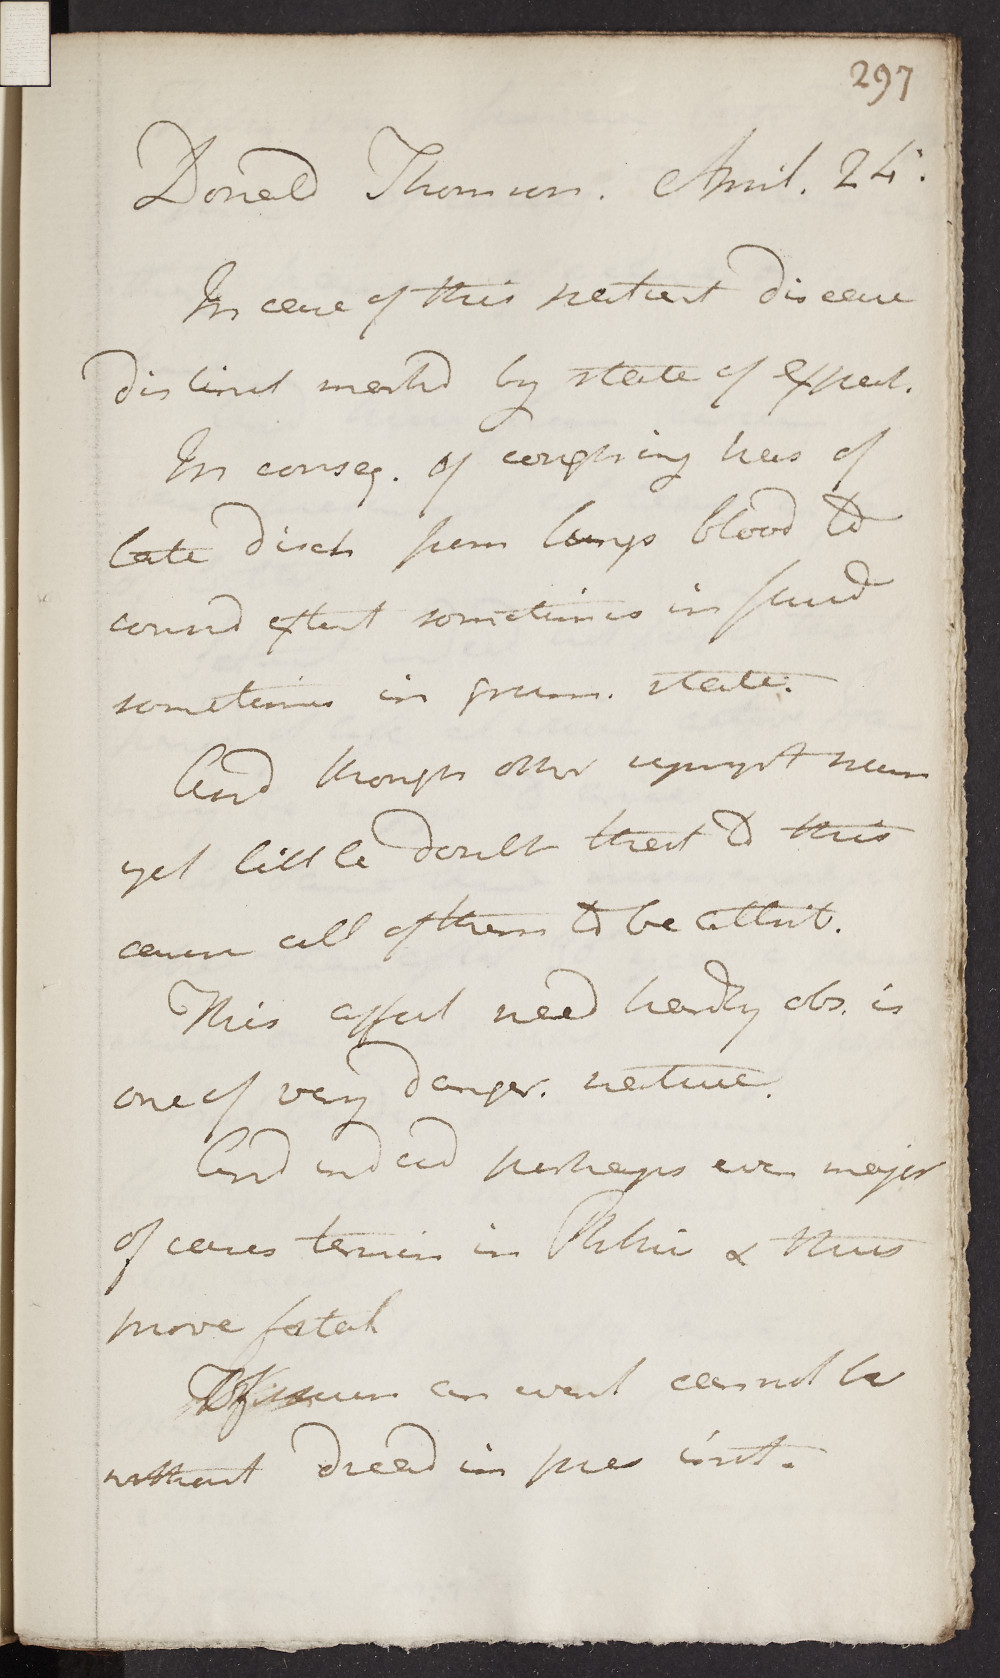 297
Donald Thomson. April. 24.
In case of this patient disease
distinct markd by state of expect.
In conseq. of coughing has of
late disch from lungs blood to
consid extent sometimes in fluid
sometimes in grum. state.
And though other sympt
yet little doubt that to this
cause all of them to be attrib.
This affect need hardly obs. is
one of very danger. nature.
And indeed perhaps even major
of cases termin in Phthis & thus
prove fatal
an event cannot be
without dread in pres inst.